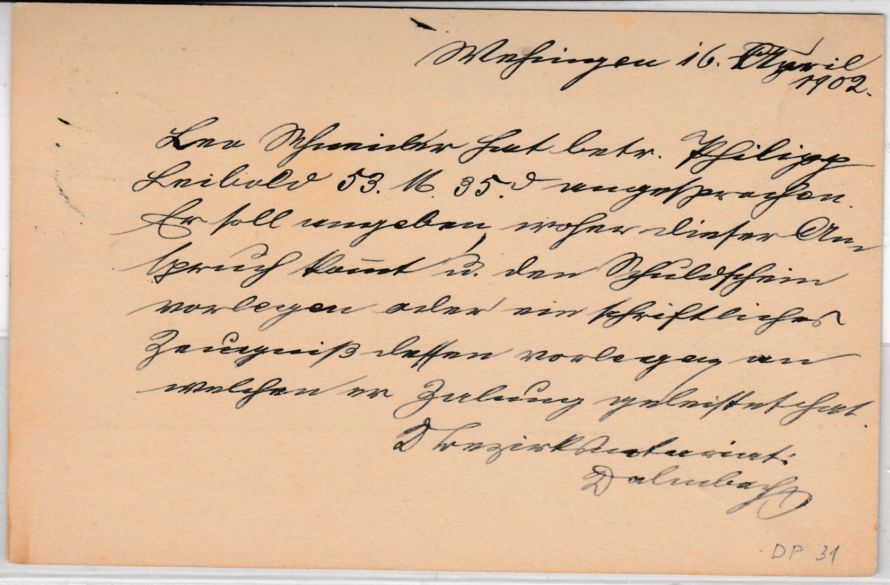 Wehingen 16. April
1902.
Leo Schneider hat betr. Philipp
Leibold 53. M. 35. d angesprochen.
Er soll angeben, woher dieser An
spruch kom̄t u. den Schuldschein
vorlegen oder ein schriftliches
Zeugniß dessen vorlegen, an
welchen er Zalung geleistet hat.
D Bezirksnotariat:
Dalmbach
DP 31